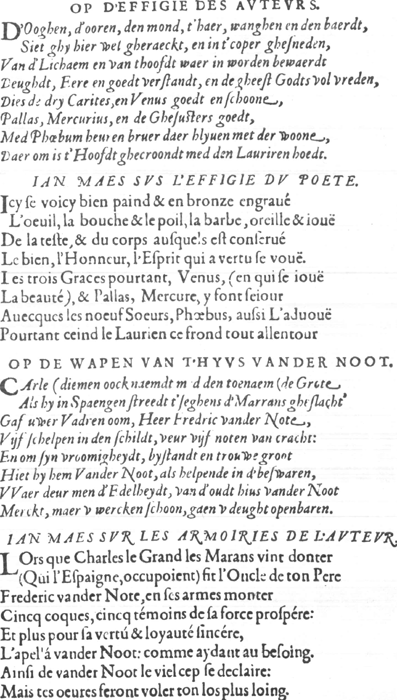 OP D'EFFIGIE DES AVTEVRS.
D'Ooghen, d'ooren, den mond, t'haer, wanghen en den baerdt,
Siet ghy hier wel gheraeckt, en in t'coper ghesneden,
Van d'Lichaem en van thoofdt waer in worden bewaerdt
Deughdt, Eere en goedt verstandt, en de gheest Godts vol vreden,
Dies de dry Carites, en Venus goedt en schoone,
Pallas, Mercurius, en de Ghesusters goedt,
Med Phœbum heur en bruer daer blyuen met der woone,
Daer om is t'Hoofdt ghecroondt med den Lauriren hoedt.
IAN MAES SVS L'EFFIGIE DV POETE.
Icy se voicy bien paind & en bronze engraué
L'oeuil, la bouche & le poil, la barbe, oreille & iouë
De la teste, & du corps ausque!s est conserué
Le bien, l'Honneur, l'Esprit qui a vertu se vouë.
Les trois Graces pourtant, Venus, (en qui se iouë
La beauté), & Pallas, Mercure, y font seiour
Auecques les noeuf Soeurs, Phœbus, aussi L'aduouë
Pourtant ceind le Laurien ce frond tout allentour
OP DE WAPEN VAN T'HVYS VANDER NOOT.
CArle (diemen oock naemdt m d den toenaem (de Grote
Als hy in Spaengen streedt t'seghens d'Marrans gheslacht
Gaf uwer Vadren oom, Heer Fredric vander Note,
Vijf schelpen in den schildt, veur vijf noten van cracht:
En om syn vroomigheydt, bystandt en trouwe gront
Hiet hy hem Vander Noot, als helpende in d'beswaren,
VVaer deur men d'Edelheydt, van d'oudt hius vander Noot
Merckt, maer v wercken schoon, gaen v deught openbaren.
IAN MAES SVR LES ARMOIRIES DE L'AVTEVR,
LOrs que Charles le Grand les Marans vint donter
(Qui l'Espaigne, occupoient) fit l'Oncle de ton Pere
Frederic vander Note, en ses armes monter
Cincq coques, cincq témoins de sa force prospére:
Et plus pour sa vertú & loyauté sincére,
L'apel'á vander Noot: comme aydant au besoing.
Ainsi de vander Noot le viel cep se declaire:
Mais tes oeures seront voler ton los plus loing.